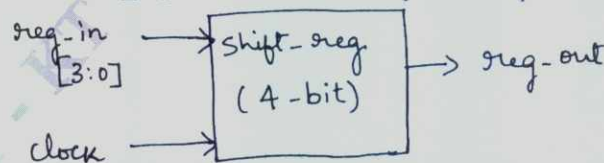 reg-in
[3:0]
clock
shift-reg
(4-bit)
reg-out